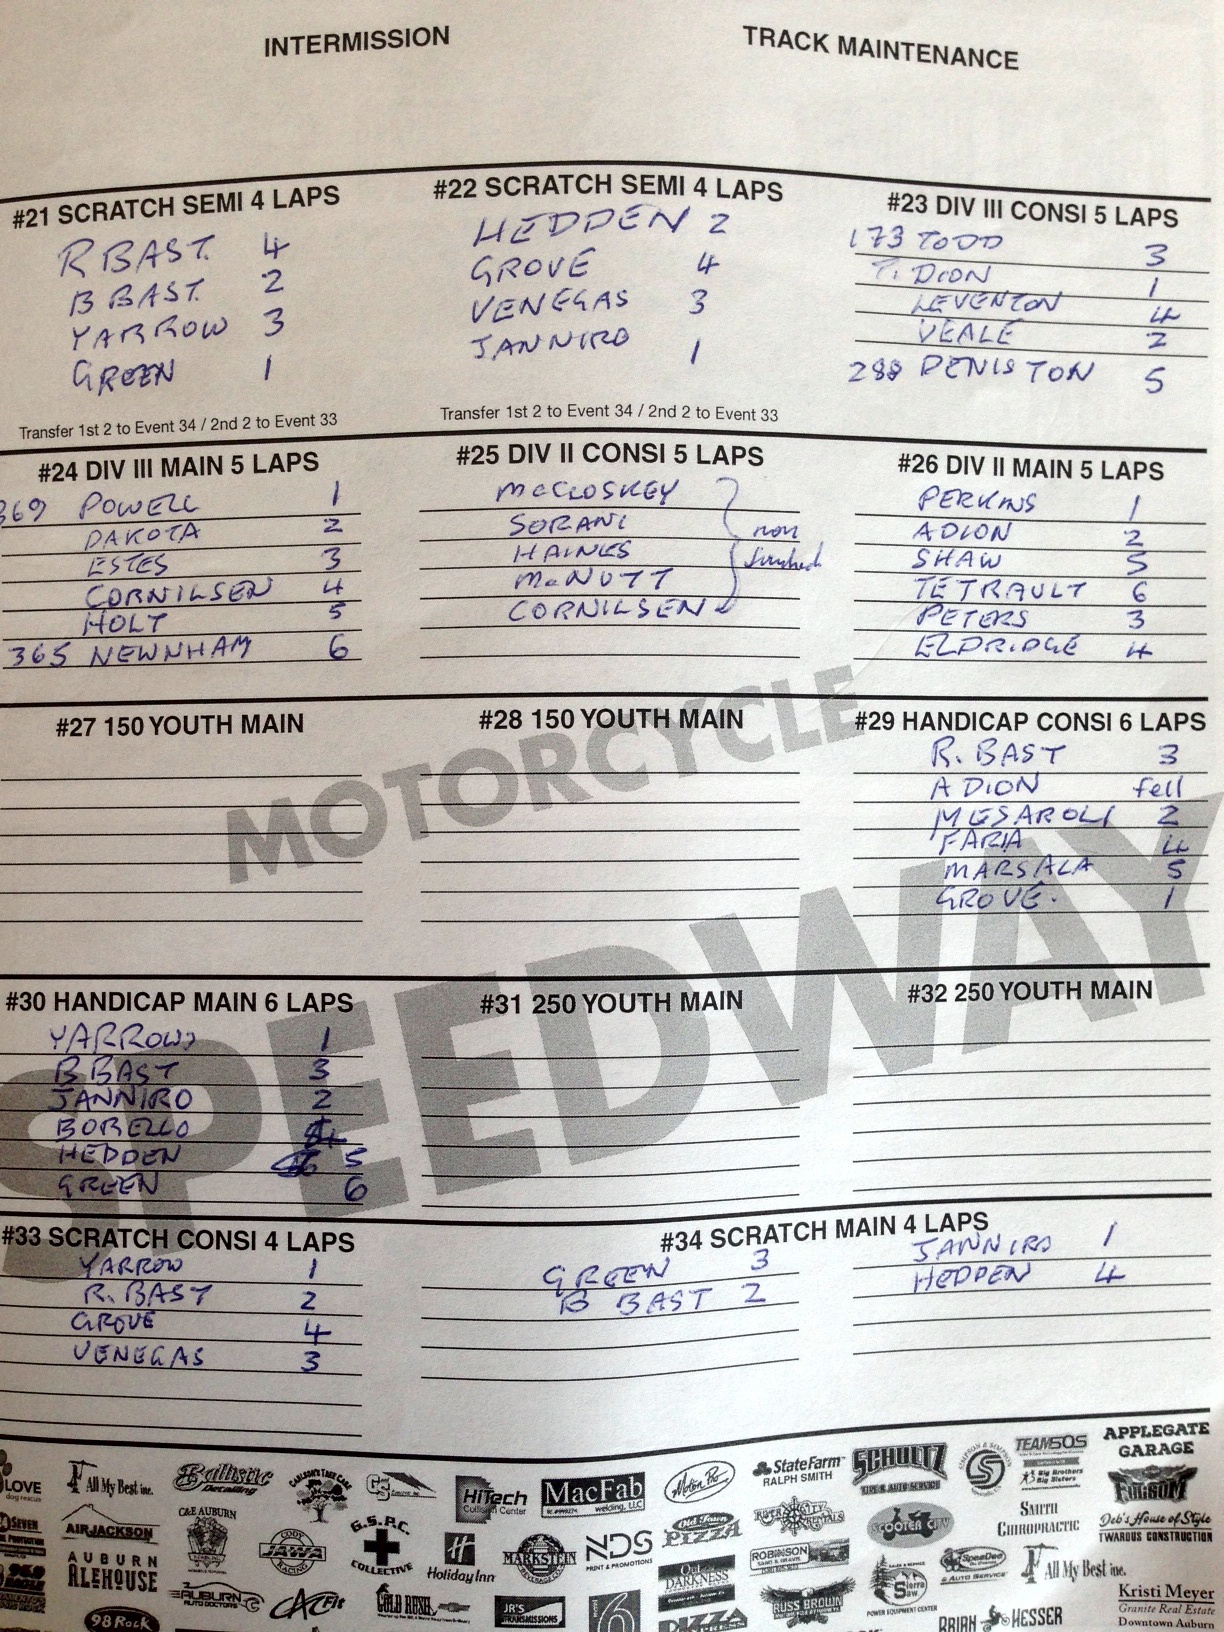 INTERMISSION
TRACK MAINTENANCE
#21 SCRATCH SEMI 4 LAPS
R BAST. 4
B BAST. 2
YARROW 3
GREEN 1
Transfer 1st 2 to Event 34 / 2nd 2 to Event 33
#22 SCRATCH SEMI 4 LAPS
HEDDEN 2
GROVE 4
VENEGAS 3
JANNIRO 1
Transfer 1st 2 to Event 34 / 2nd 2 to Event 33
#23 DIV III CONSI 5 LAPS
173 TODD 3
DION 1
LEVENTON 4
VEALE 2
288 DENISTON 5
#24 DIV III MAIN 5 LAPS
369 POWELL 1
DAKOTA 2
ESTES 3
CORNILSEN 4
HOLT 5
365 NEWNHAM 6
#25 DIV II CONSI 5 LAPS
McCLOSKEY
SORANI non
HAINES finished
McNUTT
CORNILSEN
#26 DIV II MAIN 5 LAPS
PERKINS 1
A DION 2
SHAW 5
TETRAULT 6
PETERS 3
ELDRIDGE 4
#27 150 YOUTH MAIN
#28 150 YOUTH MAIN
#29 HANDICAP CONSI 6 LAPS
R. BAST 3
A DION fell
MESAROLI 2
FARIA 4
MARSALA 5
GROVE. 1
MOTORCYCLE
SPEEDWAY
#30 HANDICAP MAIN 6 LAPS
YARROW 1
B BAST 3
JANNIRO 2
BORELLO 4
HEDDEN 5
GREEN 6
#31 250 YOUTH MAIN
#32 250 YOUTH MAIN
#33 SCRATCH CONSI 4 LAPS
YARROW 1
R. BAST 2
GROVE 4
VENEGAS 3
#34 SCRATCH MAIN 4 LAPS
GREEN 3
B BAST 2
JANNIRO 1
HEDDEN 4
LOVE
dog rescue
All My Best inc.
Ballistic
Detailing
CARLSON'S TREE CARE
HiTech
Collision Center
MacFab
welding, LLC
Motion Pro
StateFarm
RALPH SMITH
SCHULTZ
TIRE & AUTO SERVICE
TEAMSOS
Big Brothers
Big Sisters
APPLEGATE
GARAGE
FOLSOM
AIRJACKSON
C&E AUBURN
CODY
JAWA
RACING
G.S.P.C.
COLLECTIVE
Holiday Inn
MARKSTEIN
BEVERAGE CO.
NDS
PRINT & PROMOTIONS
Old Town
PIZZA
RIVER CITY
RENTALS
SCOOTER CITY
SMITH
CHIROPRACTIC
Deb's House of Style
TWAROUS CONSTRUCTION
AUBURN
ALEHOUSE
98 Rock
AUBURN
AUTO DOCTORS
GOLD RUSH
JR'S
TRANSMISSIONS
6
DARKNESS
PIZZA
ROBINSON
SAND & GRAVEL
RUSS BROWN
Sierra
Saw
POWER EQUIPMENT CENTER
SpeeDee
& AUTO SERVICE
All My Best inc.
BRIAN HESSER
Kristi Meyer
Granite Real Estate
Downtown Auburn